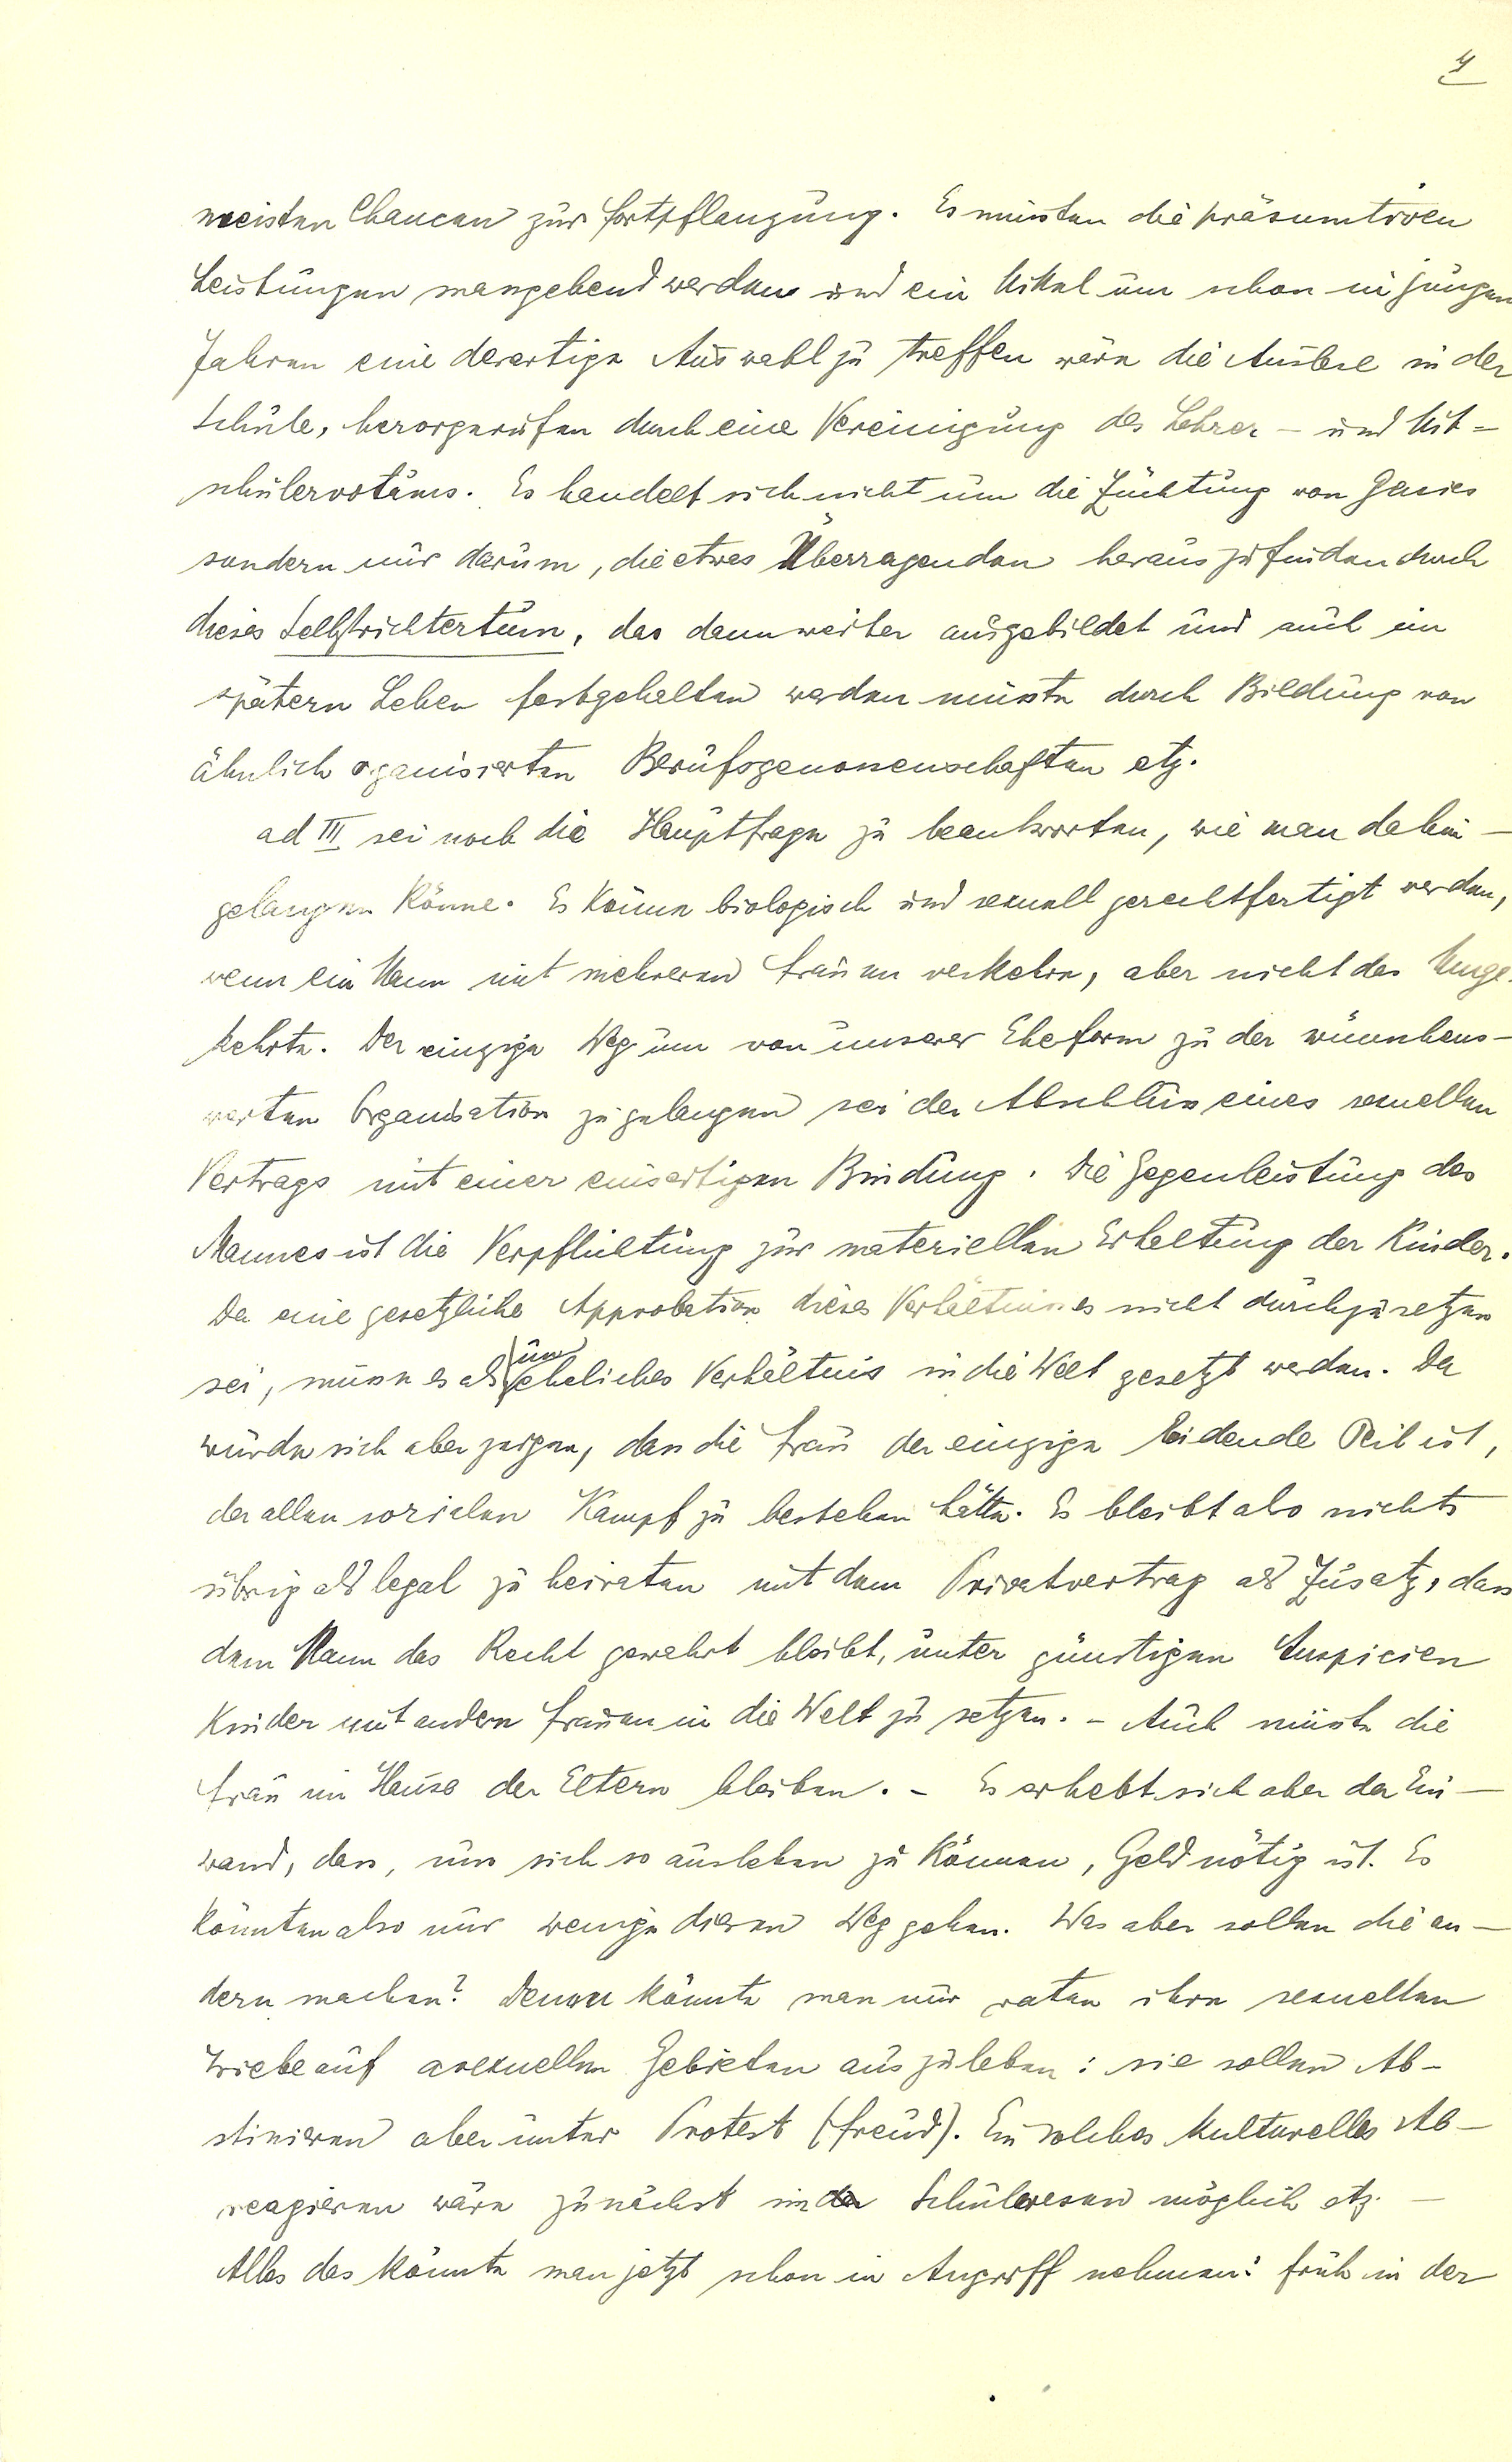 4
meisten Chancen zur Fortpflanzung. Es müssten die präsumtiven
Leistungen massgebend werden und ein Mittel um schon in jungen
Jahren eine derartige Auswahl zu treffen wäre die Auslese in der
Schule, herorgerufen durch eine Vereinigung des Lehrer- und Mit-
schülervotums. Es handelt sich nicht um die Züchtung von Genies
sondern nur darum, die etwas Überragenden herauszufinden durch
dieses Selbstrichtertum, das dann weiter ausgebildet und auch im
spätern Leben festgehalten werden müsste durch Bildung von
ähnlich organisierten Berufsgenossenschaften etz.
ad III sei noch die Hauptfrage zu beantworten, wie man dahin-
gelangen könne. Es könne biologisch und sexuell gerechtfertigt werden,
wenn ein Mann mit mehreren Frauen verkehre, aber nicht das Umge-
kehrte. Der einzige Weg um von unserer Eheform zu der wünschens-
werten Organisation zu gelangen sei der Abschluss eines sexuellen
Vertrags mit einer einseitigen Bindung. Die Gegenleistung des
Mannes ist die Verpflichtung zur materiellen Erhaltung der Kinder.
Da eine gesetzliche Approbation dieses Verhältnisses nicht durchzusetzen
sei, müsse es als uneheliches Verhältnis in die Welt gesetzt werden. Da
würde sich aber zeigen, dass die Frau der einzige leidende Teil ist,
der allen sozialen Kampf zu bestehen hätte. Es bleibt also nichts
übrig als legal zu heiraten mit dem Privatvertrag als Zusatz, dass
dem Mann das Recht gewahrt bleibt, unter günstigen Auspicien
Kinder mit andern Frauen in die Welt zu setzen. - Auch müsste die
Frau im Hause der Eltern bleiben. - Es erhebt sich aber der Ein-
wand, dass, um sich so ausleben zu können, Geld nötig ist. Es
könnten also nur wenige diesen Weg gehen. Was aber sollen die an-
dern machen? Denen könnte man nur raten ihre sexuellen
Triebe auf asexuellen Gebieten auszuleben: sie sollen Ab-
stinieren aber unter Protest (Freud). Ein solches kulturelles Ab-
reagieren wäre zunächst im Schulwesen möglich etz. -
Alles das könnte man jetzt schon in Angriff nehmen: früh in der